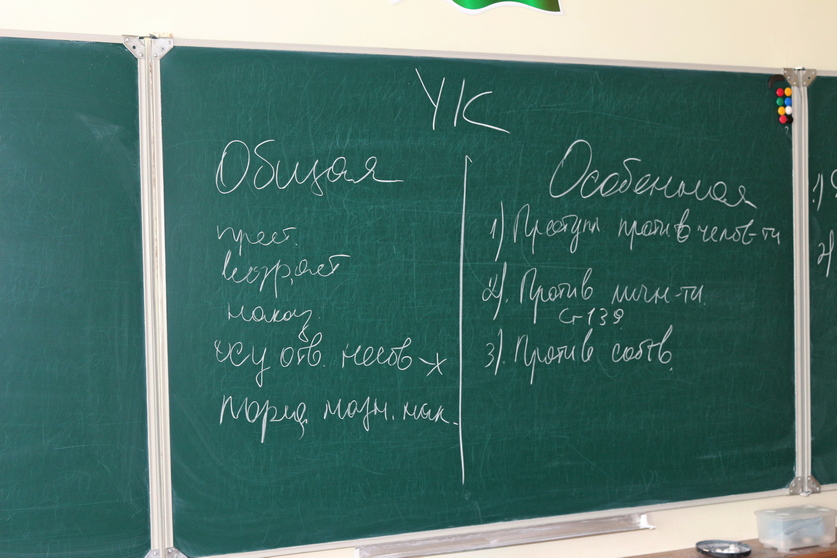 УК
Общая
прест.
возраст
наказ.
отв. несов-х
поряд. назн. нак.
Особенная
1) Преступл против челов-ти
2). Против личн-ти.
Ст 139
3). Против собств.
1)
2)